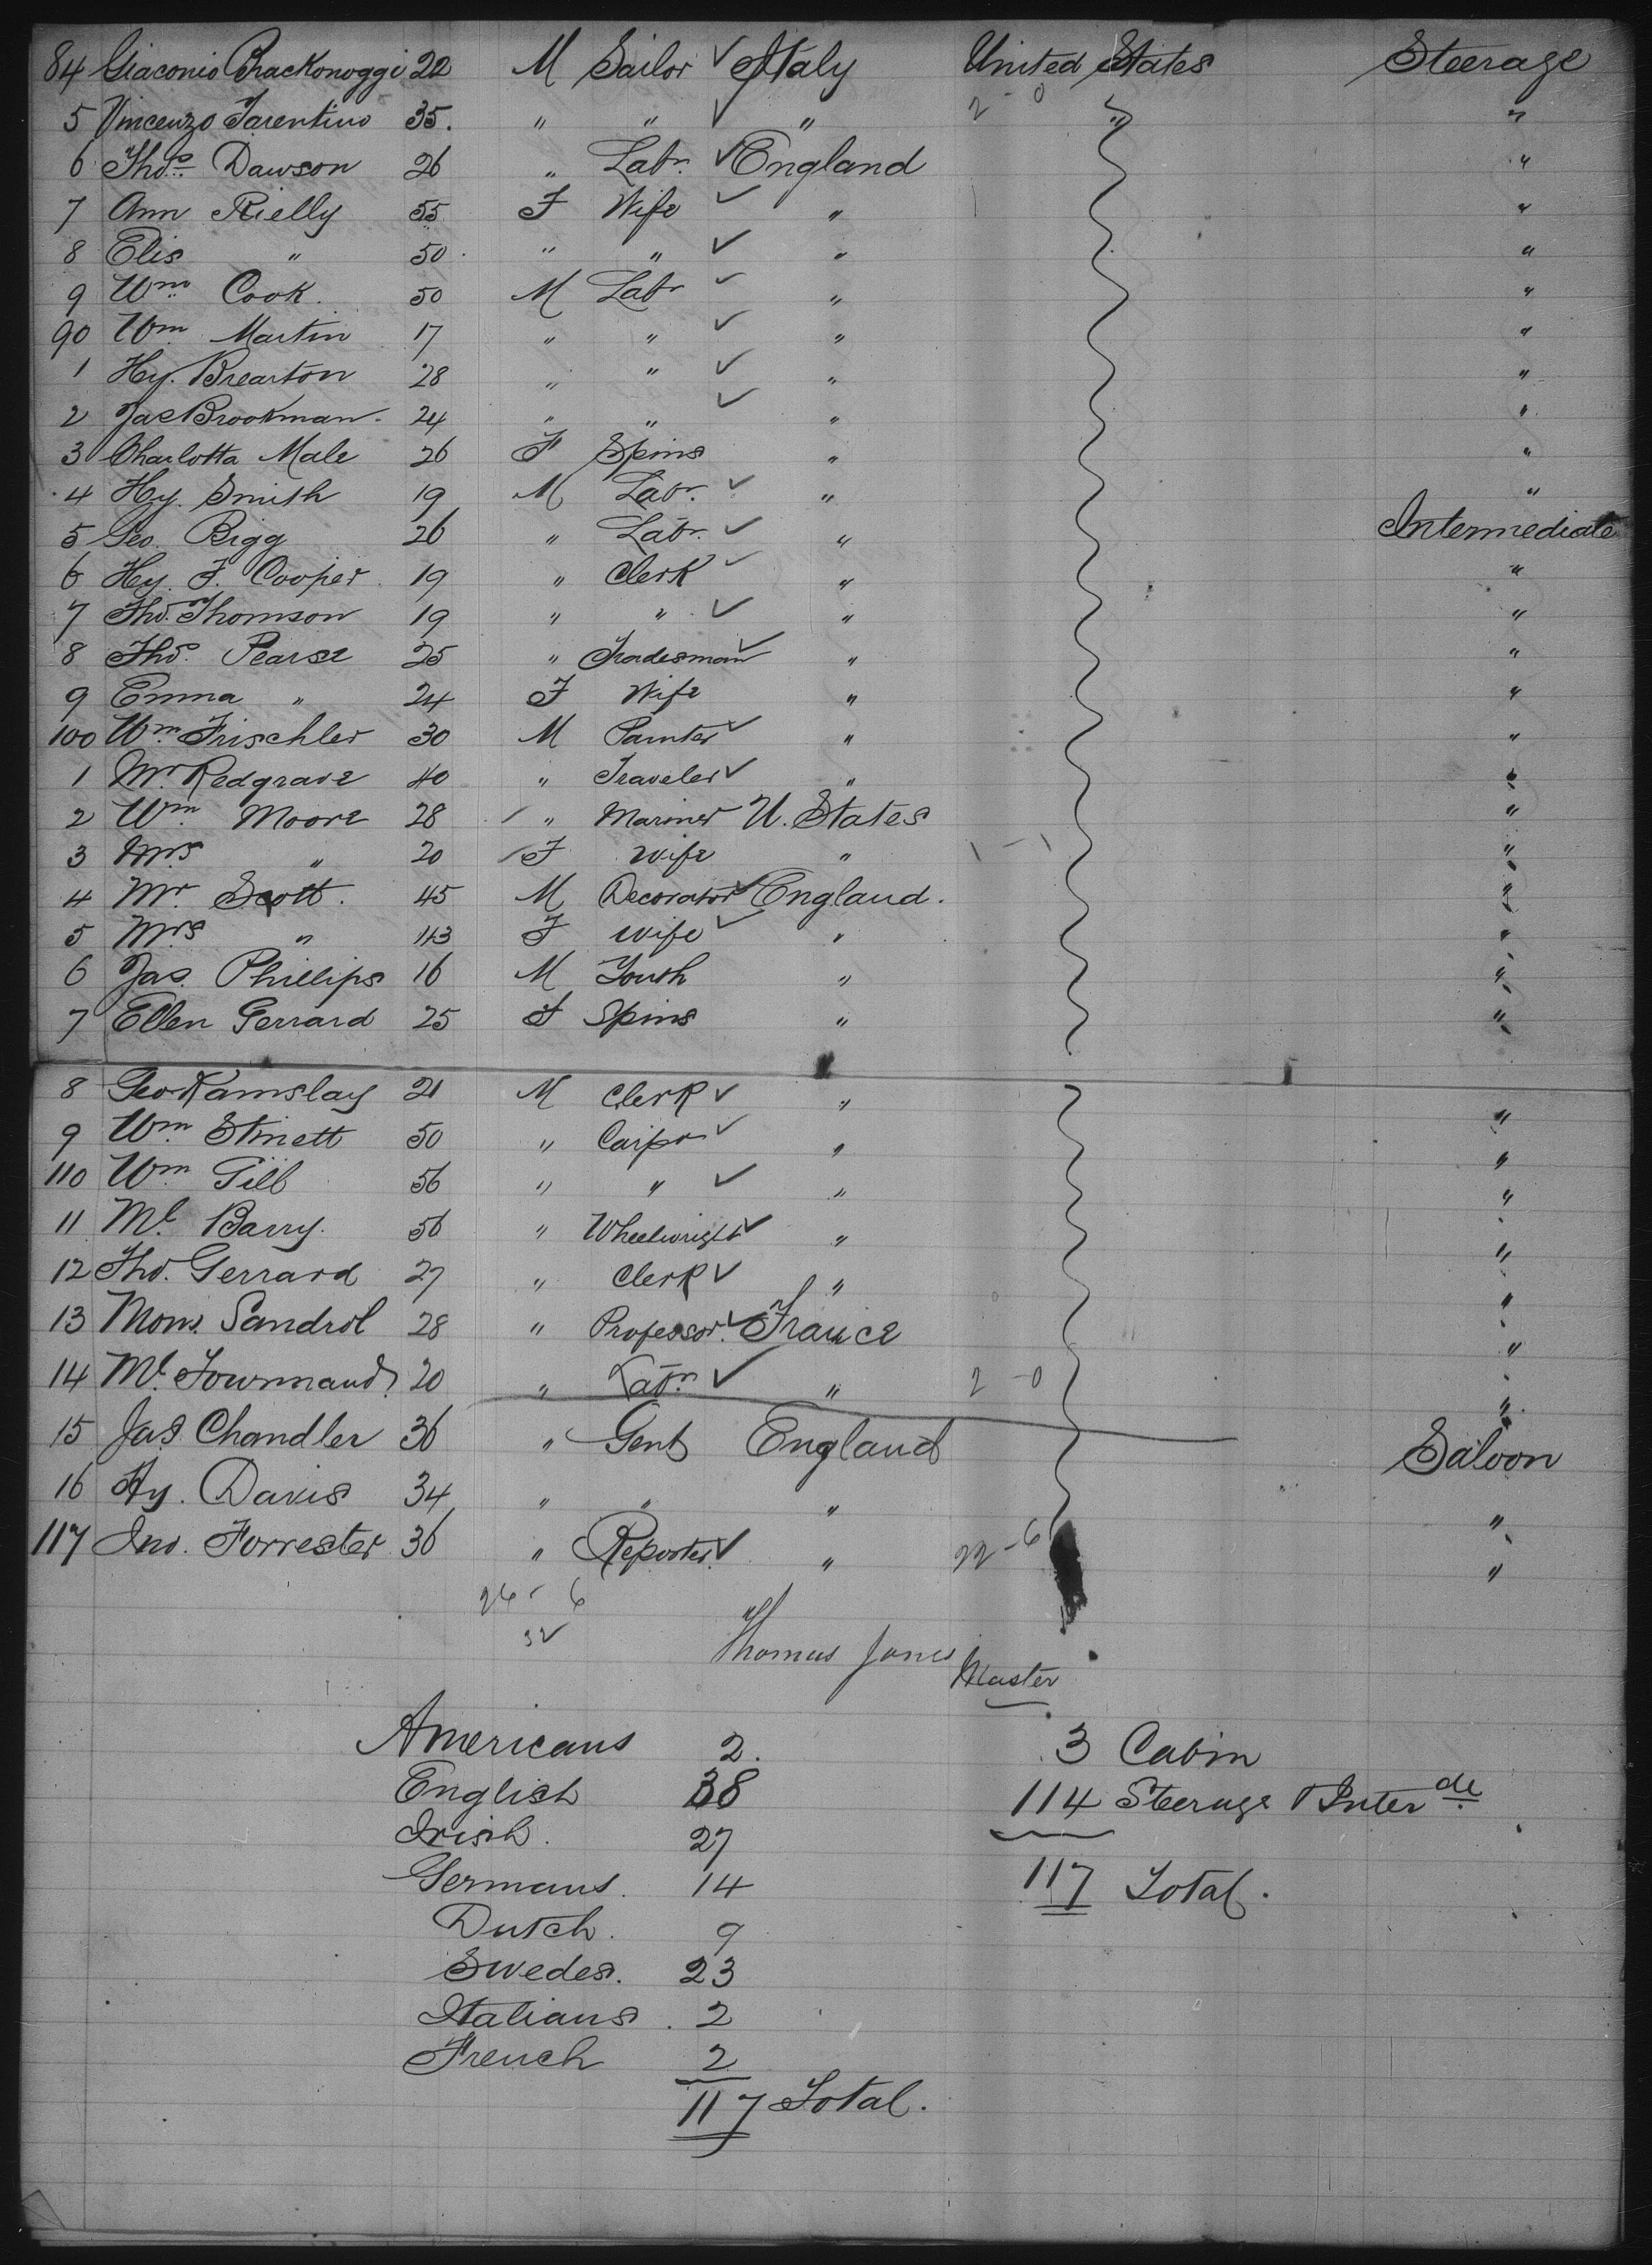 84 Giaconio Brackonoggi 22 M Sailor ✓ Italy United States Steerage
5 Vincenzo Tarentino 35. " " ✓ " 2 - 0 " "
6 Thos. Dawson 26 " Labr. ✓ England "
7 Ann Rielly 55 F Wife ✓ " "
8 Elis " 50 " " ✓ " "
9 Wm Cook. 50 M Labr ✓ " "
90 Wm Martin 17 " " ✓ " "
1 Hy. Brearton 28 " " ✓ " "
2 Jas Brookman 24 " " ✓ " "
3 Charlotta Male 26 F Spins " "
4 Hy. Smith 19 M Labr. ✓ " "
5 Geo. Bigg 26 " Labr. ✓ " Intermediate
6 Hy. F. Cooper 19 " Clerk ✓ " "
7 Thos. Thomson 19 " " ✓ " "
8 Thos. Pearse 25 " Tradesman ✓ " "
9 Emma " 24 F Wife " "
100 Wm Frischler 30 M Painter ✓ " "
1 Mr Redgrave 40 " Traveler ✓ " "
2 Wm Moore 28 " Mariner U. States "
3 Mrs " 20 F Wife " 1 - 1 "
4 Mr Scott. 45 M Decorator ✓ England. "
5 Mrs " 43 F Wife ✓ " "
6 Jas. Phillips 16 M Youth " "
7 Ellen Gerrard 25 F Spins " "
8 Geo Ramslay 21 M Clerk ✓ " "
9 Wm Stinett 50 " Carpr ✓ " "
110 Wm Gilb 56 " " ✓ " "
11 Ml Barry. 56 " Wheelwright ✓ " "
12 Thos. Gerrard 27 " Clerk ✓ " "
13 Mons. Sandrol 28 " Professor. ✓ France "
14 Ml. Townmand 20 " Labr. ✓ " 2 - 0 "
15 Jas. Chandler 36 " Gent England Saloon
16 Hy. Davis 34 " " " "
117 Jno. Forrester 36 " Reporter ✓ " 22 - 6 "
26 - 6
32
Thomas Jones Master
Americans 2. 3 Cabin
English 38 114 Steerage & Interde
Irish. 27
Germans. 14 117 Total.
Dutch. 9
Swedes. 23
Italians. 2
French 2
117 Total.